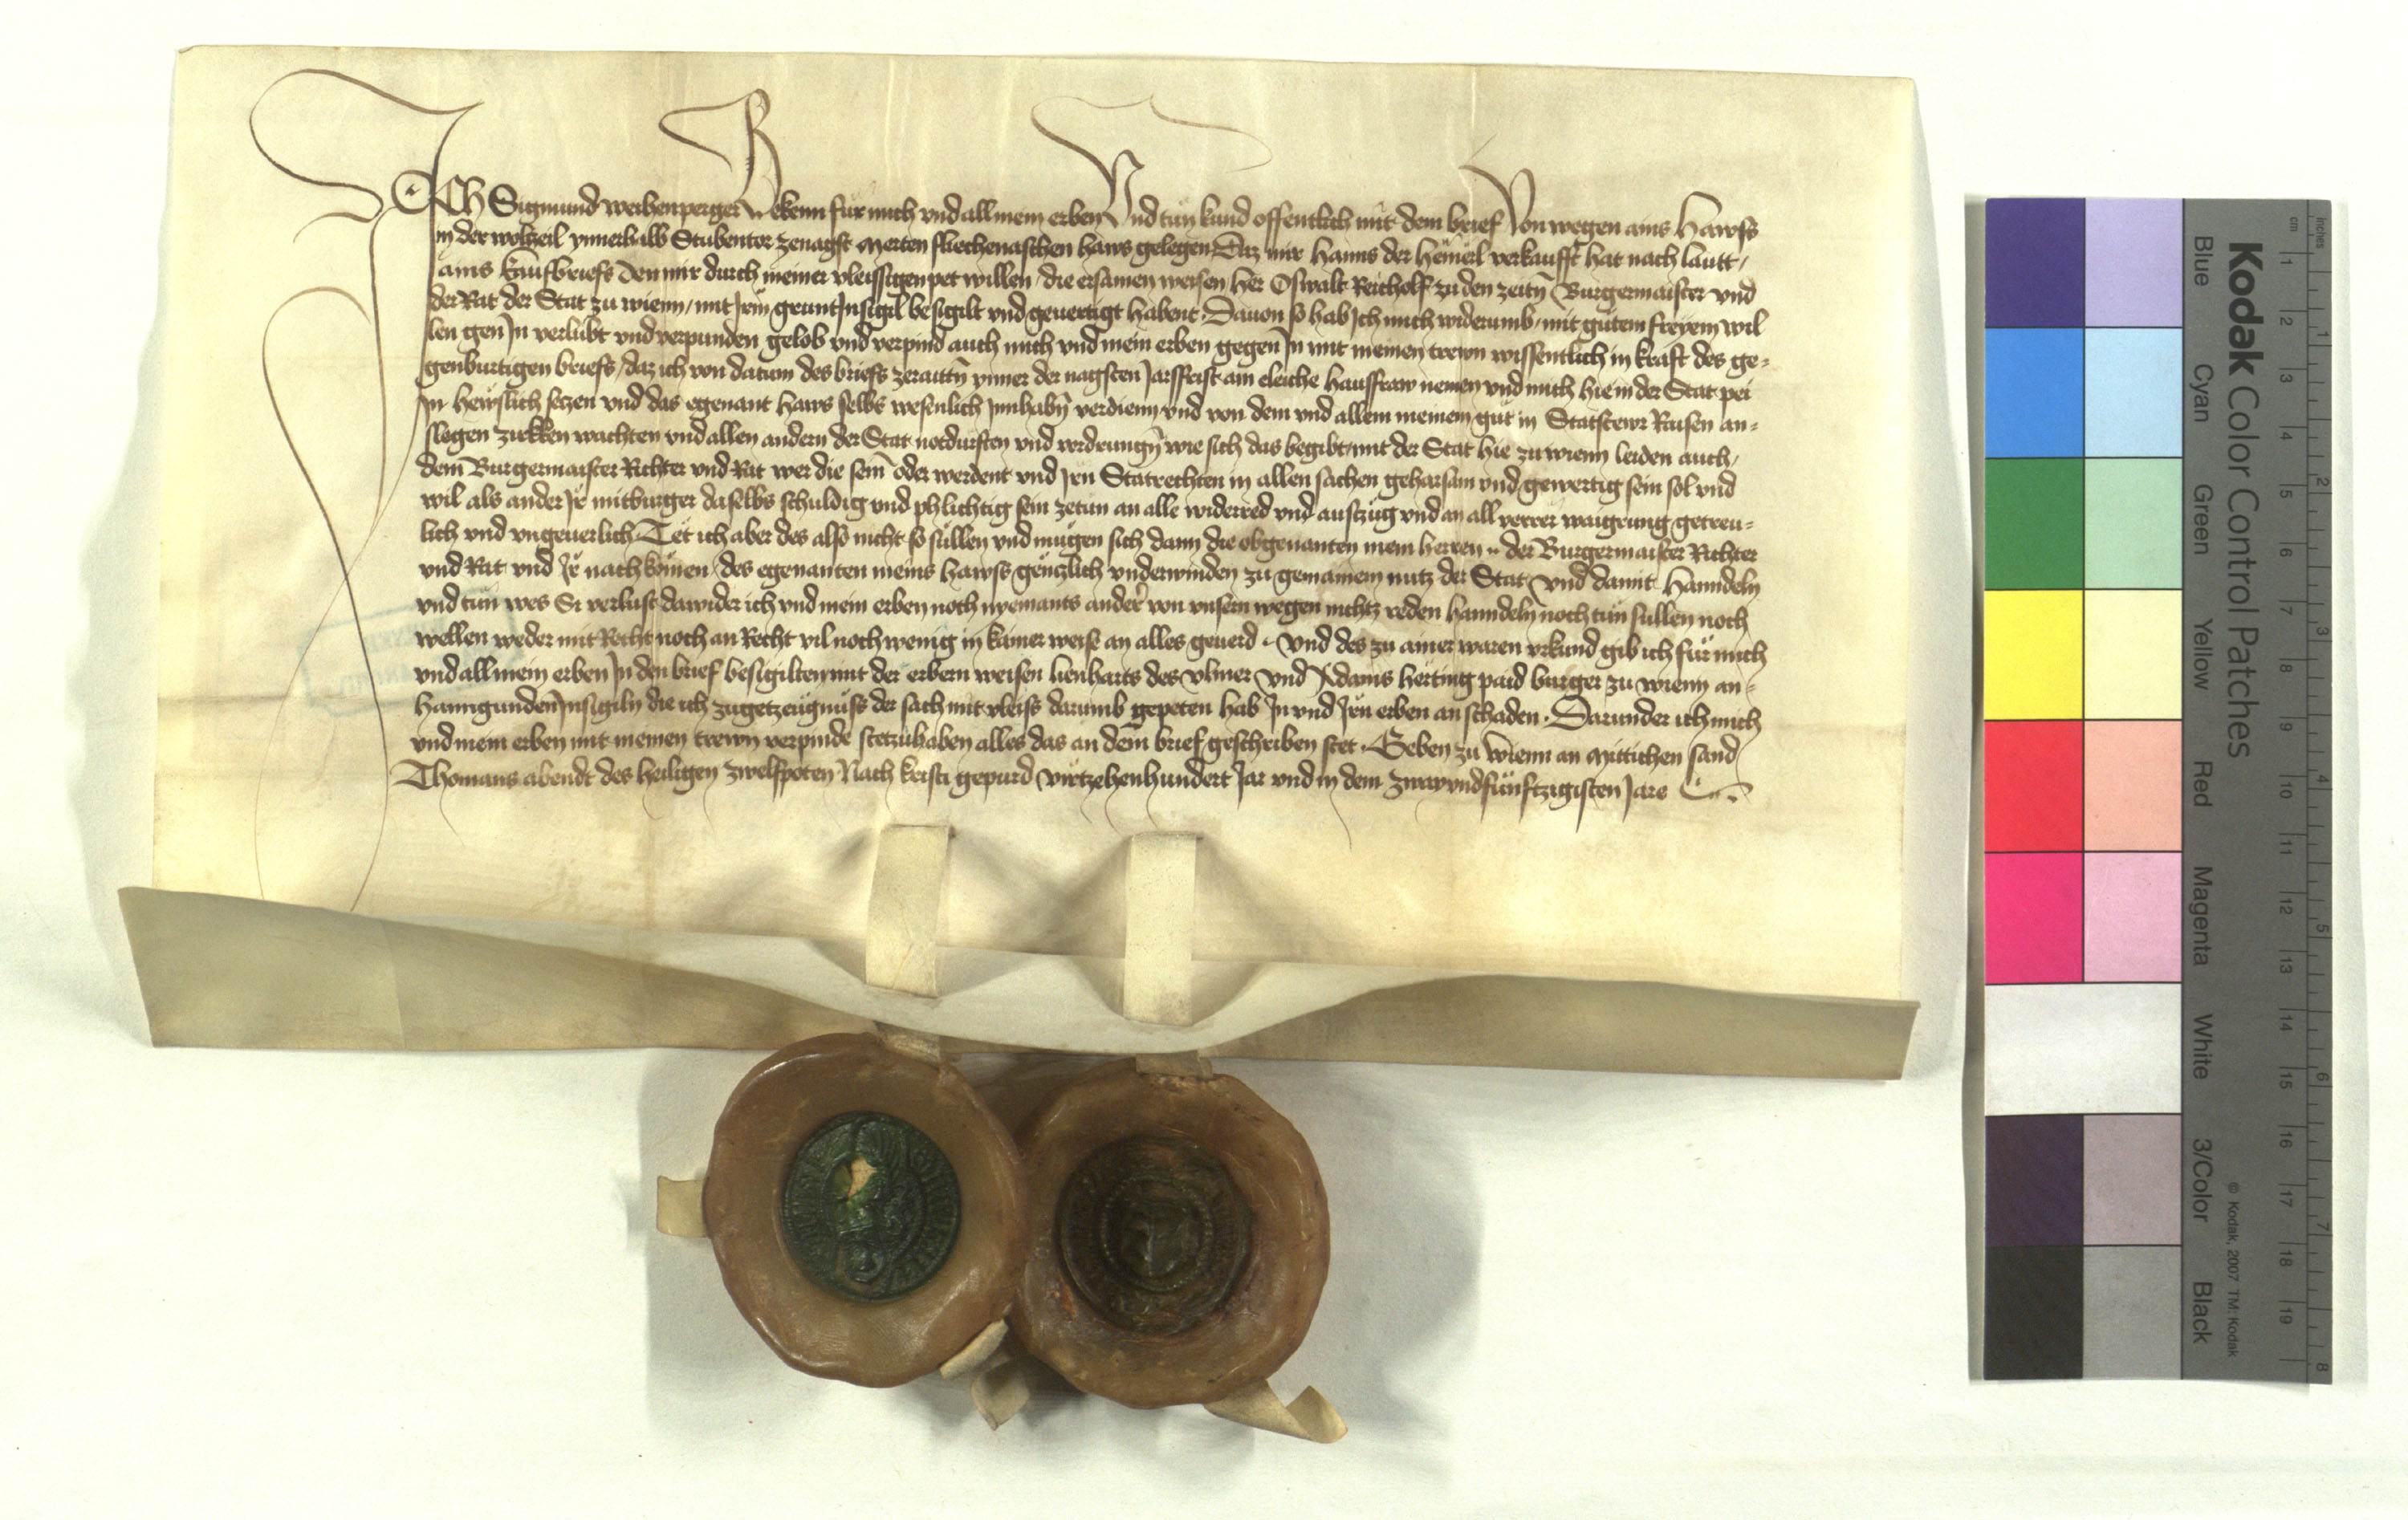 ICH Sigmund weihenperger Bekenn fur mich vnd all mein erben Vnd tun kund offentlich mit dem brief Von wegen ains Hawss
in der wolzeil ynnerhalb Stubentor zenagst Merten fliechenaschen haws gelegen Daz mir Hanns der Hëmerl verkaufft hat nach lautt
ains kaufbriefs den mir durch meiner vleissigen pet willen / die ersamen weisen Her Oswalt Reicholf zu den zeitn̄ Burgermaister vnd
der Rat der Stat zu wienn / mit Jrm gruntJnsigil besigilt vnd geuertigt habent Dauon so hab Jch mich widerumb / mit gutem freyem wil
len gen Jn verlubt vnd verpunden gelob vnd verpind auch mich vnd mein erben gegen Jn mit meinen trewn wissentlich in kraft des ge=
genburtigen briefs / daz ich von datum des briefs zeraittn̄ ynner der nagsten Jarsfrist ain eleiche hausfraw nemen vnd mich hie in der Stat pei
Jn hewslich setzen vnd das egenant haws selbs wesenlich Jnnhabn̄ verdienn vnd von dem vnd allem meinem gut in Statstewr Raisen an=
slegen zirkken wachten vnd allen andern der Stat notdurften vnd vordrungn̄ wie sich das begibt / mit der Stat hie zu wienn leiden auch /
dem Burgermaister Richter vnd Rat wer die sein̄ oder werdent vnd Jrn Statrechten in allen sachen gehorsam vnd gewertig sein sol vnd
wil als ander Jr mitburger daselbs schuldig vnd phlichtig sein zetun an alle widerred vnd auszug vnd an all verrer waigrung getreu=
lich vnd vngeuerlich Tët ich aber des also nicht so sullen vnd mugen sich dann die obgenanten mein herren .. der Burgermaister Richter
vnd Rat vnd Jr nachkomen / des egenanten meins Hawss genczlich vnderwinden zu gemainem nutz der Stat vnd damit Hanndeln
vnd tun wes Si verlust dawider ich vnd mein erben noch nyemants ander von vnsern wegen nichtz reden hanndeln noch tun sullen noch
wellen weder mit Recht noch an Recht vil noch wenig in kainer weise an alles geuerd · Vnd des zu ainer waren vrkund gib ich fur mich
vnd all mein erben Jn den brief besigilten mit der erbern weisen lienharts des vlmer vnd Adams Herting paid burger zu wienn an=
hanngunden̄ Jnsigiln die ich zugetzeugnuss der sach mit vleiss darumb gepeten hab Jn vnd Jrn erben an schaden · Darunder ich mich
vnd mein erben mit meinen trewn verpinde stetzuhaben alles das an dem brief geschriben stet · Geben zu wienn an Mittichen sand
Thomans abendt des heiligen zwelfpoten Nach kristi gepurd viertzehenhundert Jar vnd in dem zwayvndfunftzigisten Jare
Kodak Color Control Patches
Blue Cyan Green Yellow Red Magenta White 3/Color Black
© Kodak, 2007 TM: Kodak
inches 1 2 3 4 5 6 7 8
cm 1 2 3 4 5 6 7 8 9 10 11 12 13 14 15 16 17 18 19